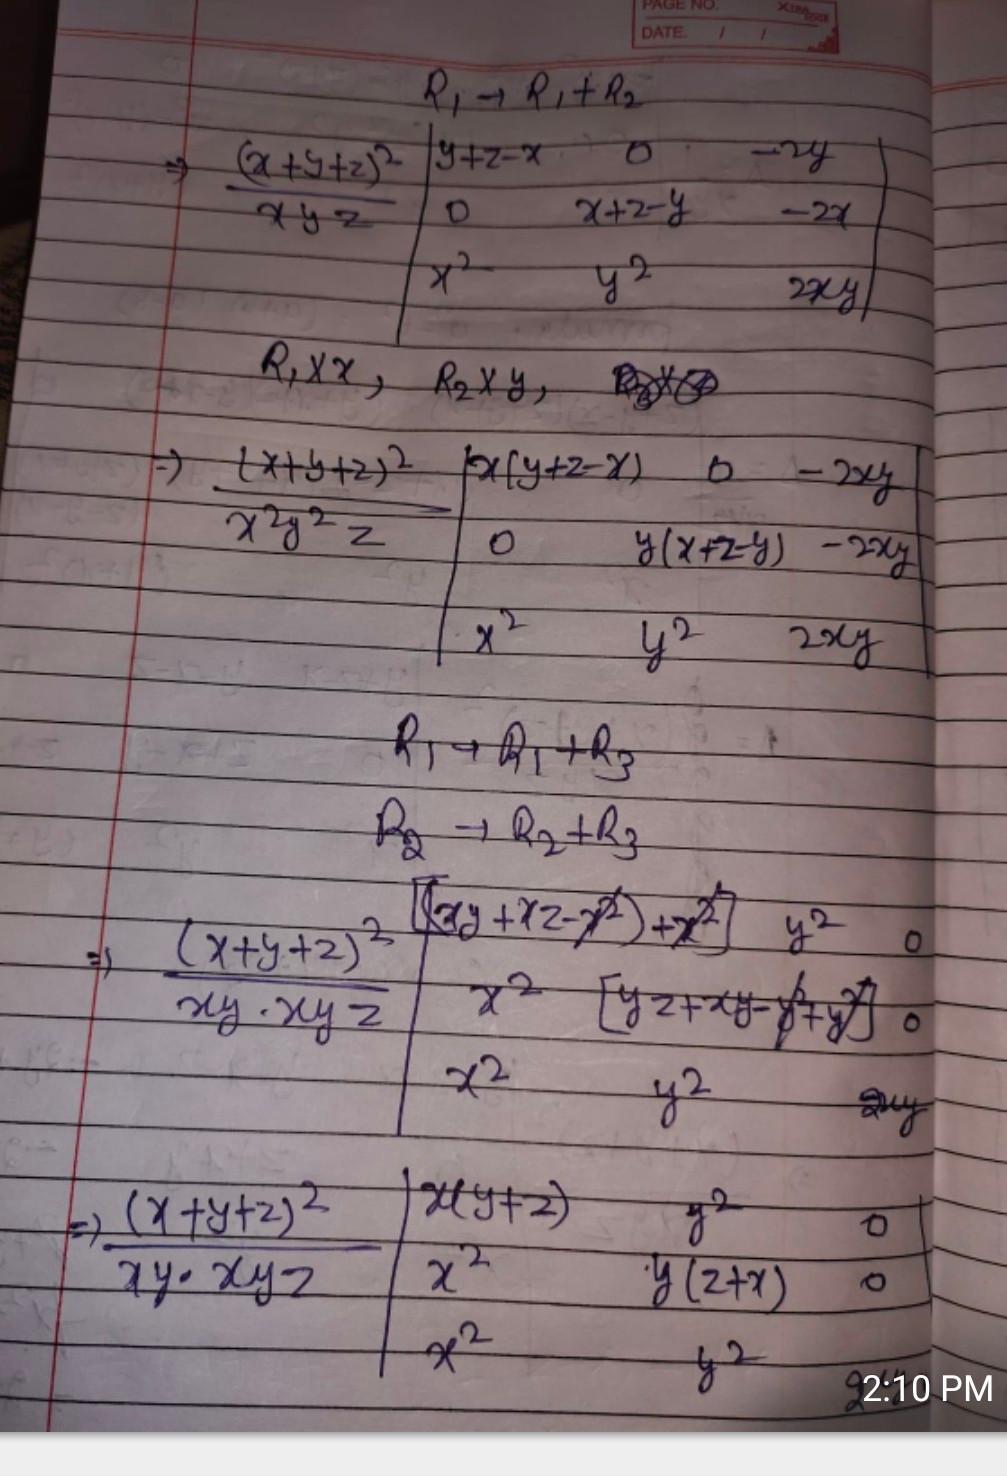 PAGE NO.
DATE. / /
R₁ → R₁ + R₂
⇒ (x+y+z)² / xyz | y+z-x 0 -2y |
| 0 x+z-y -2x |
| x² y² 2xy |
R₁ × x, R₂ × y,
⇒ (x+y+z)² / x²y²z | x(y+z-x) 0 -2xy |
| 0 y(x+z-y) -2xy |
| x² y² 2xy |
R₁ → R₁ + R₃
R₂ → R₂ + R₃
⇒ (x+y+z)² / xy·xyz | [(xy+xz-x²)+x²] y² 0
| x² [yz+xy-y²+y²] 0
| x² y² 2xy
⇒ (x+y+z)² / xy·xyz | x(y+z) y² 0 |
| x² y(z+x) 0 |
| x² y²
2:10 PM